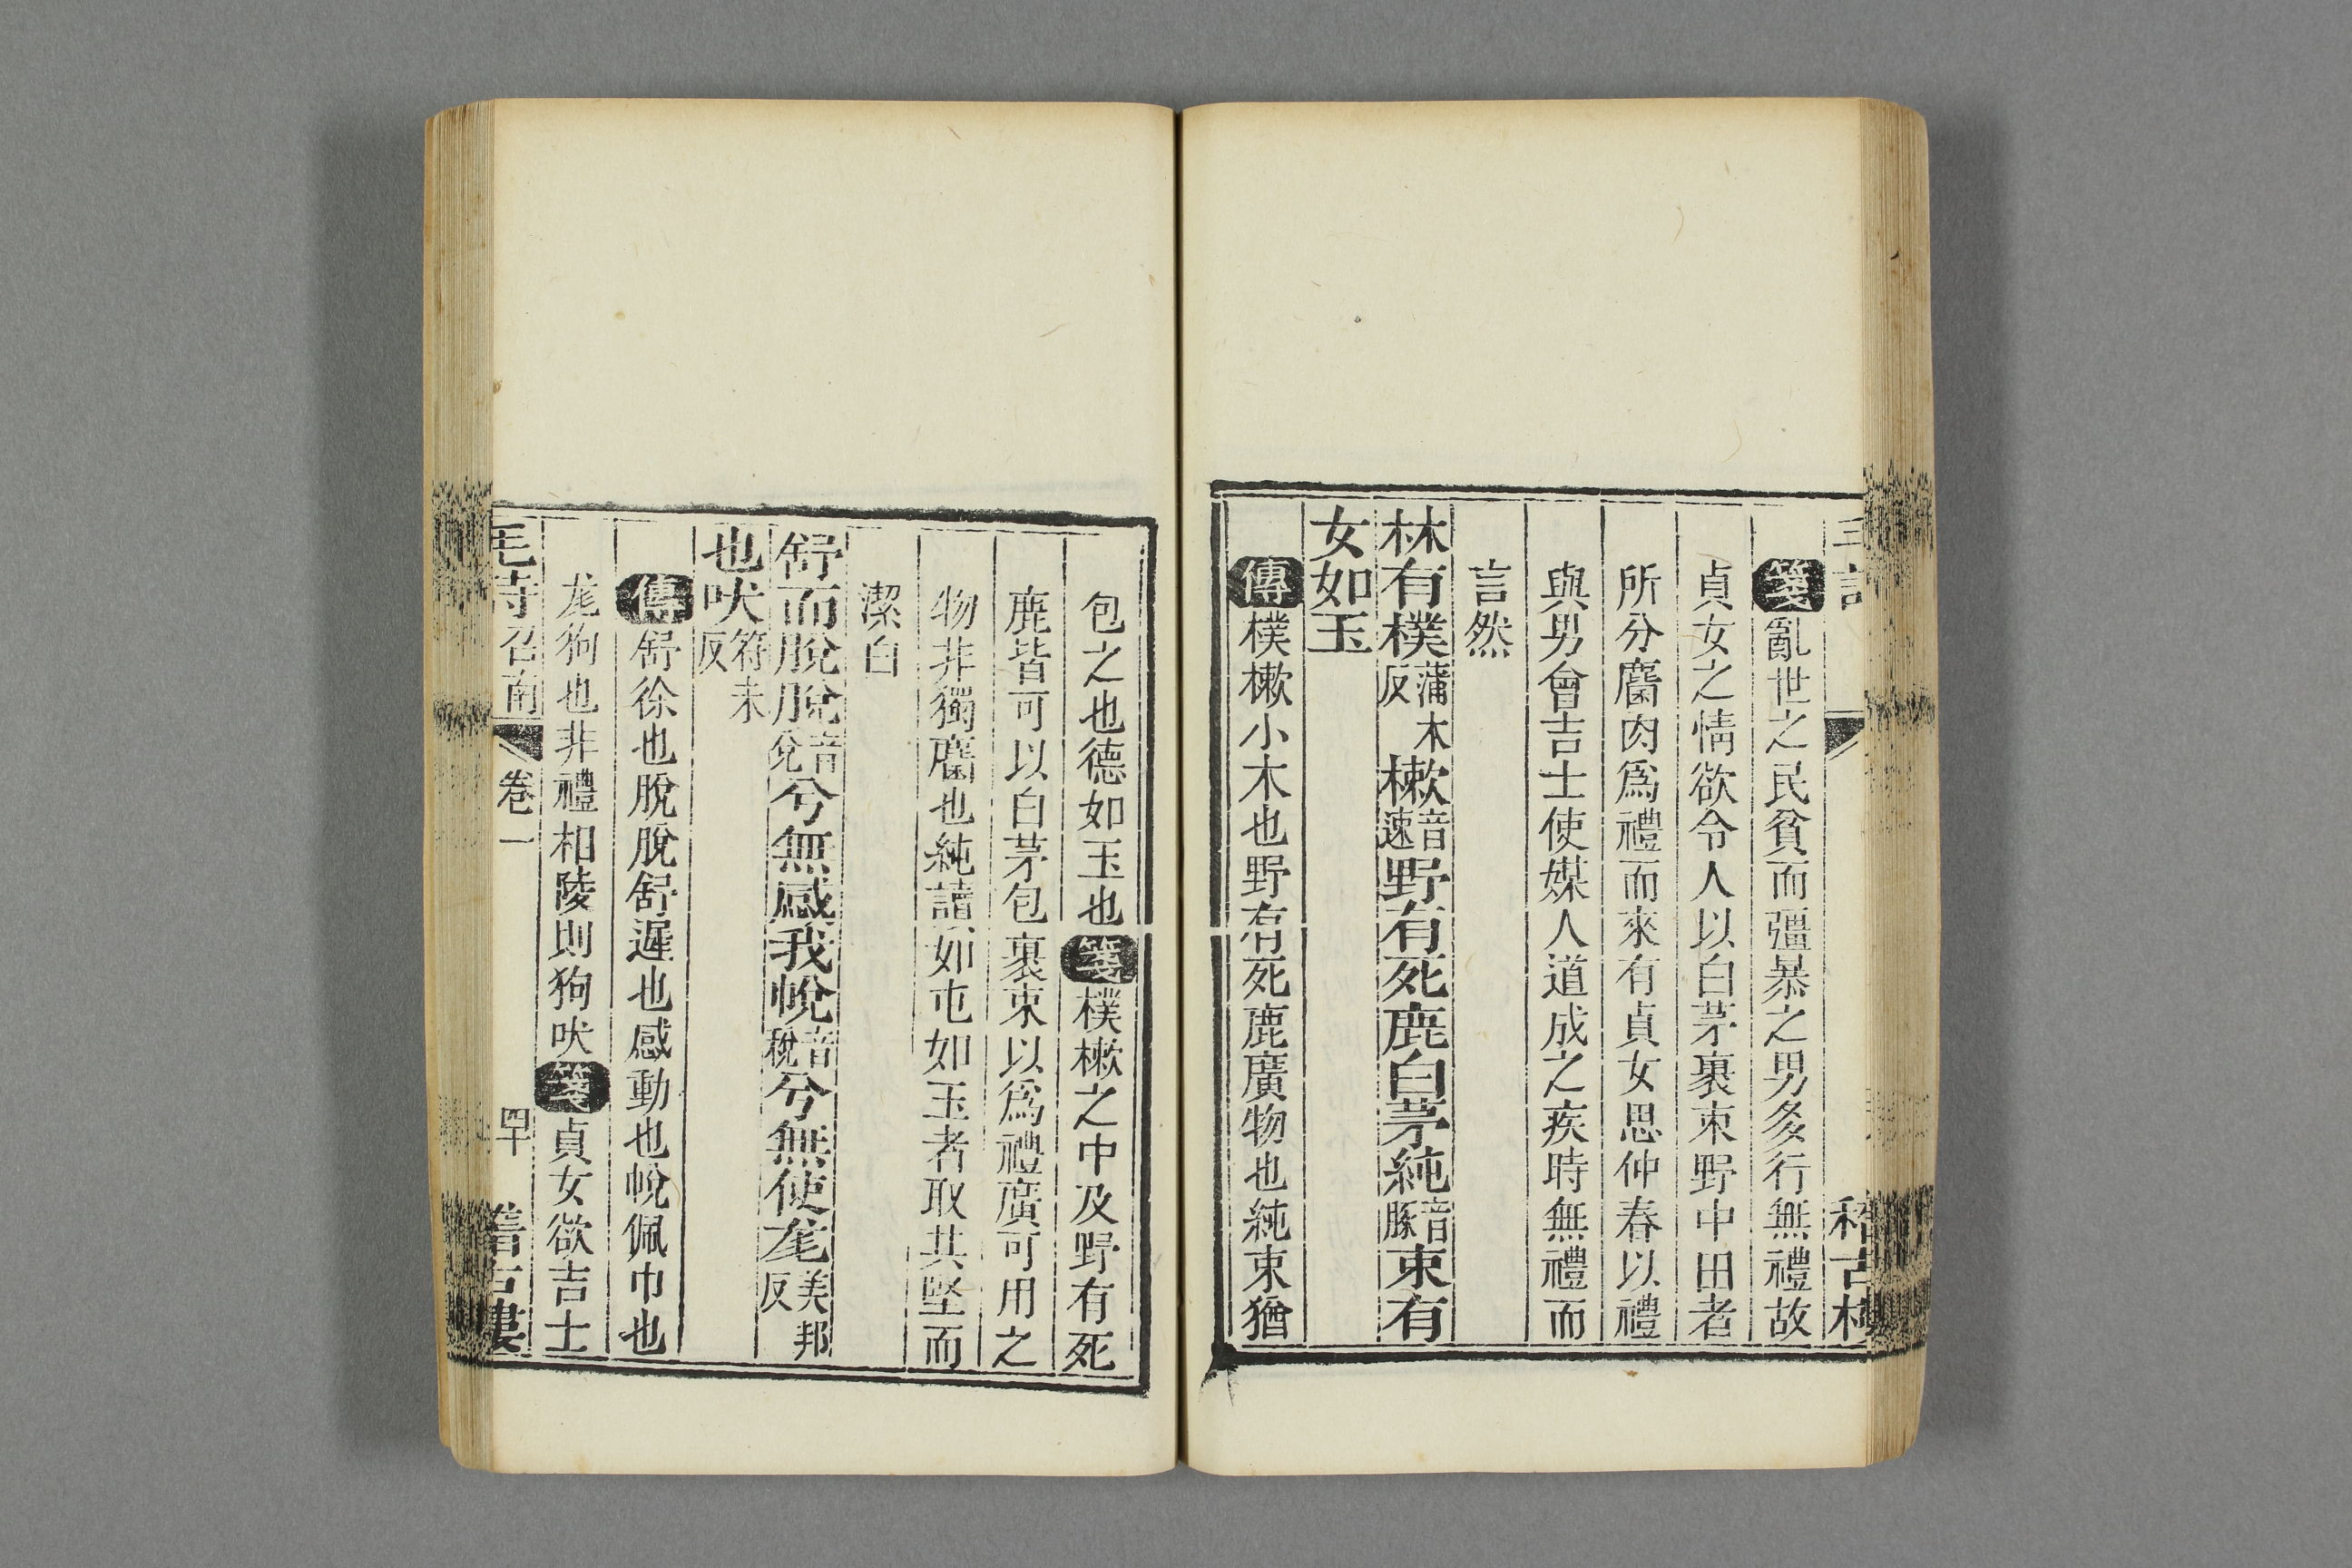 箋亂世之民貧而彊暴之男多行無禮故
貞女之情欲令人以白茅裹束野中田者
所分麕肉爲禮而來有貞女思仲春以禮
與男會吉士使媒人道成之疾時無禮而
言然
林有樸蒲木反樕音速野有死鹿白茅純音豚束有
女如玉
傳樸樕小木也野有死鹿廣物也純束猶
包之也德如玉也箋樸樕之中及野有死
鹿皆可以白茅包裹束以爲禮廣可用之
物非獨麕也純讀如屯如玉者取其堅而
潔白
舒而脫脫音兌兮無感我帨音稅兮無使尨美邦反
也吠符未反
傳舒徐也脫脫舒遲也感動也帨佩巾也
尨狗也非禮相陵則狗吠箋貞女欲吉士
召南 卷一 四